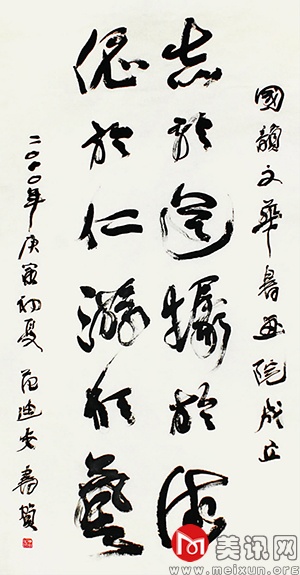 國韻文華書画院成立
志於道據於德
依於仁游於藝
二〇一〇年庚寅初夏 范迪安書賀
美讯网
www.meixun.org